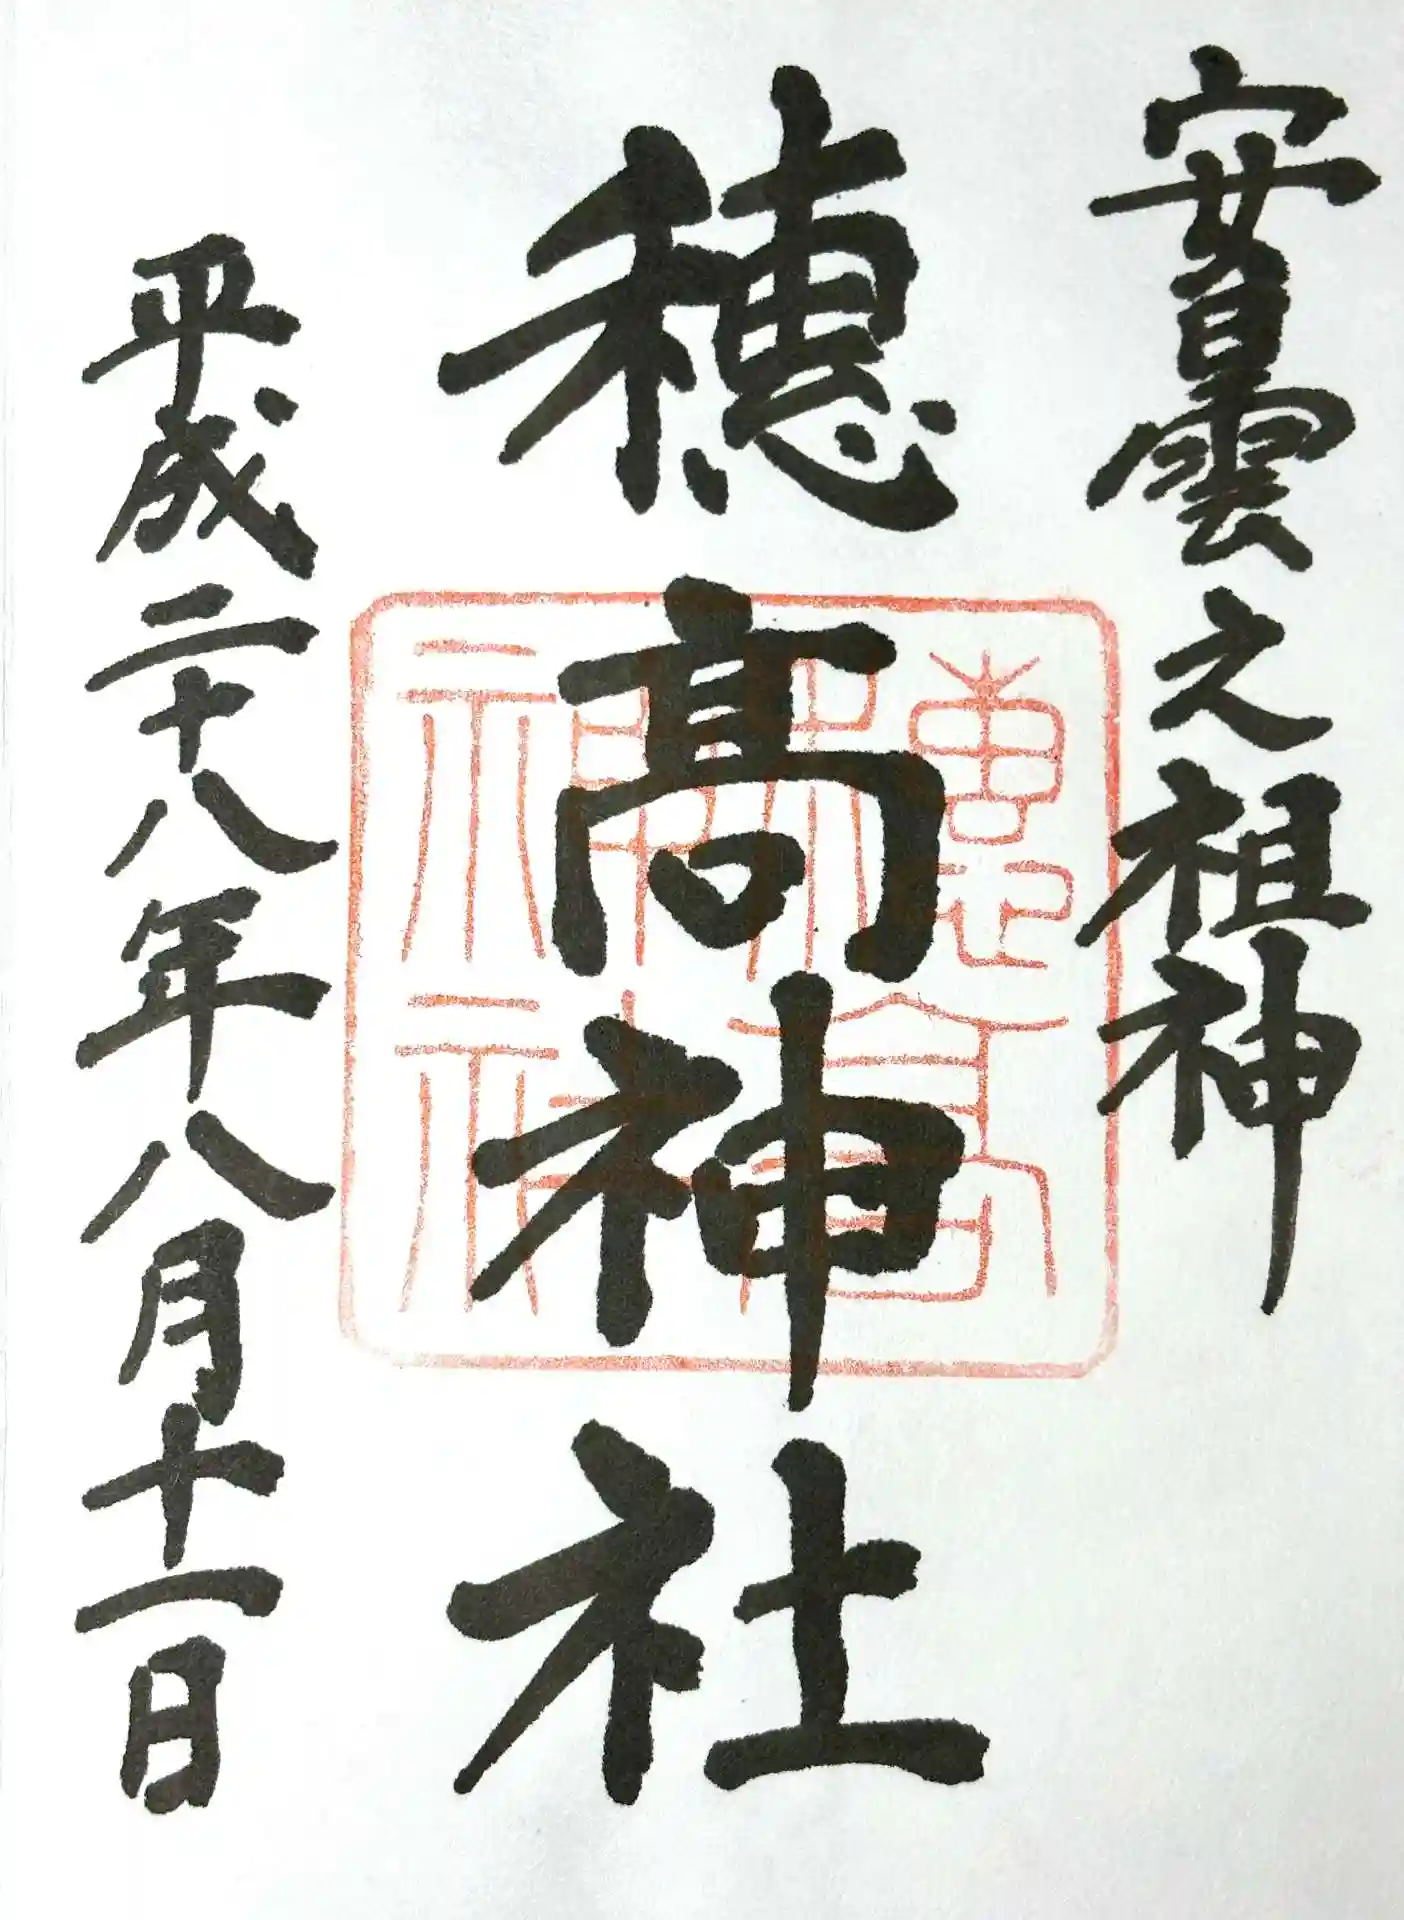 安曇之祖神
穂髙神社
穂髙神社
平成二十八年八月十一日